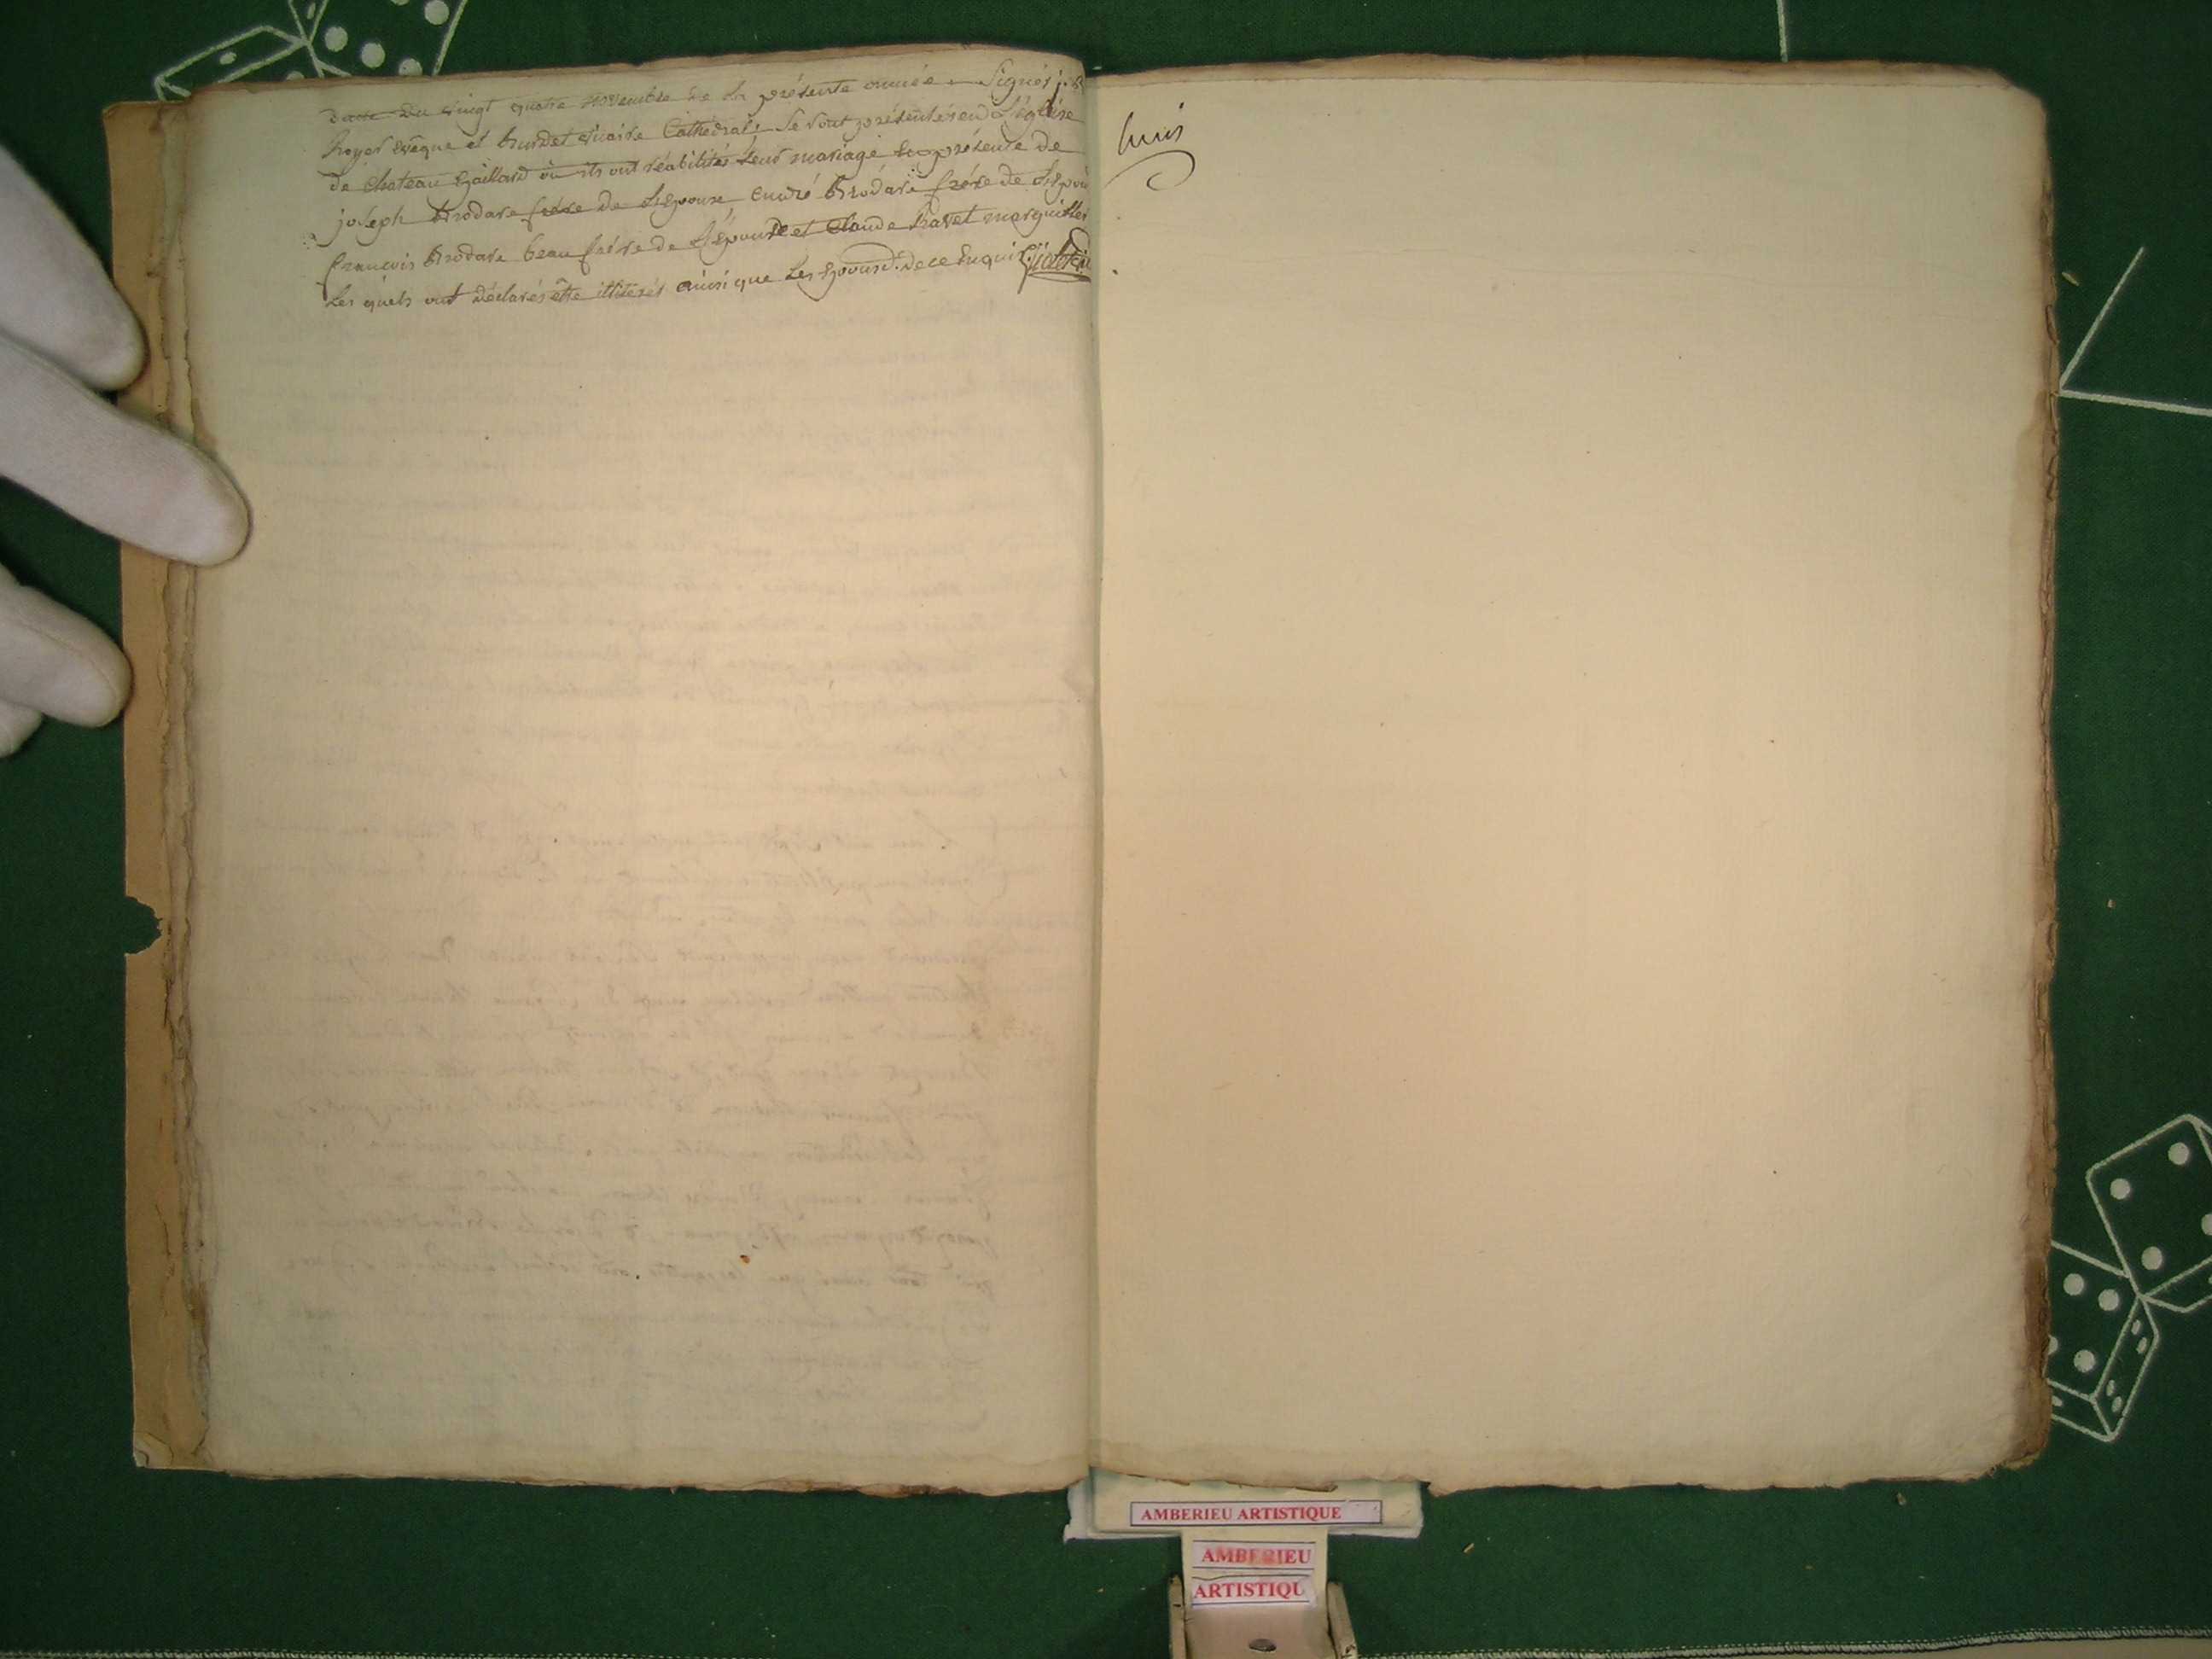 Date du vingt quatre novembre de la présente année. Signés j. B
Royer Evêque et Burdet Vicaire Cathédral; Se sont présentés en L'église
de Chateau Gaillard où ils ont réabilités leur mariage En présence de
joseph Brodare frère de L'Epoux, André Brodare frère de L'Epoux
françois Brodare beau frère de L'Epouse et Claude Ravet marguillier
Les quels ont déclarés être illiterés ainsi que Les Epoux. De ce Enquis.
AMBERIEU ARTISTIQUE
AMBERIEU
ARTISTIQU